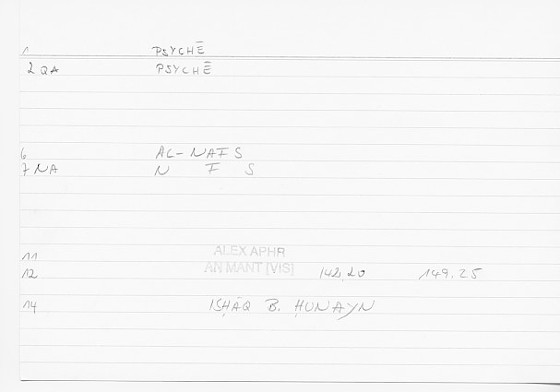 1 PSYCHĒ
2 QA PSYCHĒ
6 AL-NAFS
7 NA N F S
11 ALEX APHR
12 AN MANT [VIS] 148,20 149,25
14 ISḤĀQ B. ḤUNAYN